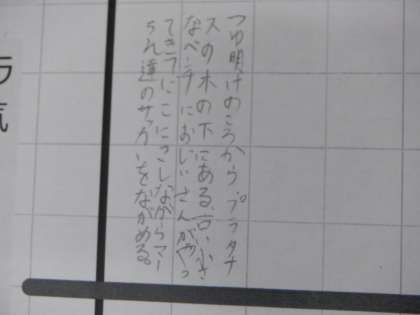 つゆ明けのころからプラタナ
スの木の下にある、古い小さ
なベンチにおじいさんがやっ
てきてにこにこしながらマー
達のサッカーをながめる。
ラ気